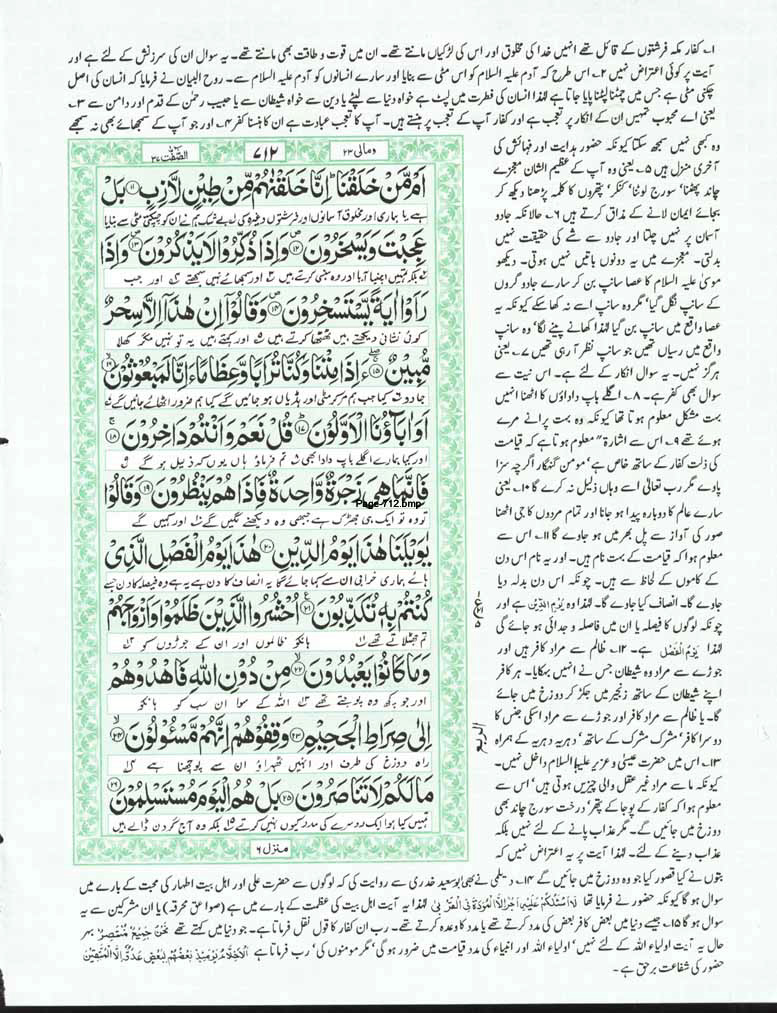 ۱۔ کفار مکہ فرشتوں کے قائل تھے انہیں خدا کی مخلوق اور اس کی لڑکیاں مانتے تھے۔ ان میں قوت و طاقت بھی مانتے تھے۔ یہ سوال ان کی سرزنش کے لئے ہے اور
آیت پر کوئی اعتراض نہیں ۲۔ اس طرح کہ آدم علیہ السلام کو اس مٹی سے بنایا اور سارے انسانوں کو آدم علیہ السلام سے۔ روح البیان نے فرمایا کہ انسان کی اصل
چکنی مٹی ہے جس میں چمٹنا لپٹنا پایا جاتا ہے لہٰذا انسان کی فطرت میں لپٹ ہے خواہ دنیا سے لپٹے یا دین سے خواہ شیطان سے یا حبیب رحمٰن کے قدم اور دامن سے ۳۔
یعنی اے محبوب تمہیں ان کے انکار پر تعجب ہے اور کفار آپ کے تعجب پر ہنستے ہیں۔ آپ کا تعجب عبادت ہے ان کا ہنسنا کفر ۴۔ اور جو آپ کے سمجھائے بھی نہ سمجھے
وما لی ۲۳
۷۱۲
الصّٰفّٰت ۳۷
اَمْ مَّنْ خَلَقْنَا ؕ اِنَّا خَلَقْنٰهُمْ مِّنْ طِیْنٍ لَّازِبٍ ۱۱ بَلْ
عَجِبْتَ وَیَسْخَرُوْنَ ۱۲ وَاِذَا ذُكِّرُوْا لَا یَذْكُرُوْنَ ۱۳ وَاِذَا
رَاَوْا اٰیَةً یَّسْتَسْخِرُوْنَ ۱۴ وَقَالُوْۤا اِنْ هٰذَاۤ اِلَّا سِحْرٌ
کوئی نشانی دیکھتے ہیں ٹھٹھا کرتے ہیں اور کہتے ہیں یہ تو نہیں مگر کھلا
مُّبِیْنٌ ۱۵ ءَاِذَا مِتْنَا وَكُنَّا تُرَابًا وَّعِظَامًا ءَاِنَّا لَمَبْعُوْثُوْنَ ۱۶
جادو کیا جب ہم مر کر مٹی اور ہڈیاں ہو جائیں گے کیا ہم ضرور اٹھائے جائیں گے
اَوَ اٰبَآؤُنَا الْاَوَّلُوْنَ ۱۷ قُلْ نَعَمْ وَاَنْتُمْ دَاخِرُوْنَ ۱۸
اور کیا ہمارے اگلے باپ دادا بھی تم فرماؤ ہاں یوں کہ ذلیل ہو کے
فَاِنَّمَا هِیَ زَجْرَةٌ وَّاحِدَةٌ فَاِذَا هُمْ یَنْظُرُوْنَ ۱۹ وَقَالُوْا
Page-712.bmp
تو وہ تو ایک ہی جھڑک ہے جبھی وہ دیکھنے لگیں گے اور کہیں گے
یٰوَیْلَنَا هٰذَا یَوْمُ الدِّیْنِ ۲۰ هٰذَا یَوْمُ الْفَصْلِ الَّذِیْ
ہائے ہماری خرابی ان سے کہا جائے گا یہ انصاف کا دن ہے یہ ہے وہ فیصلہ کا دن جسے
كُنْتُمْ بِهٖ تُكَذِّبُوْنَ ۲۱ اُحْشُرُوا الَّذِیْنَ ظَلَمُوْا وَاَزْوَاجَهُمْ
تم جھٹلاتے تھے ہانکو ظالموں اور ان کے جوڑوں کو
وَمَا كَانُوْا یَعْبُدُوْنَ ۲۲ مِنْ دُوْنِ اللّٰهِ فَاهْدُوْهُمْ
اور جو کچھ وہ پوجتے تھے اللہ کے سوا ان سب کو ہانکو
اِلٰی صِرَاطِ الْجَحِیْمِ ۲۳ وَقِفُوْهُمْ اِنَّهُمْ مَّسْئُوْلُوْنَ ۲۴
راہ دوزخ کی طرف اور انہیں ٹھہراؤ ان سے پوچھنا ہے
مَا لَكُمْ لَا تَنَاصَرُوْنَ ۲۵ بَلْ هُمُ الْیَوْمَ مُسْتَسْلِمُوْنَ ۲۶
تمہیں کیا ہوا ایک دوسرے کی مدد کیوں نہیں کرتے بلکہ وہ آج گردن ڈالے ہیں
منزل ۶
وہ کبھی نہیں سمجھ سکتا کیونکہ حضور ہدایت اور فہمائش کی
آخری منزل ہیں ۵۔ یعنی وہ آپ کے عظیم الشان معجزے
چاند پھٹنا، سورج لوٹنا، کنکر، پتھروں کا کلمہ پڑھنا دیکھ کر
بجائے ایمان لانے کے مذاق کرتے ہیں ۶۔ حالانکہ جادو
آسمان پر نہیں چلتا اور جادو سے شے کی حقیقت نہیں
بدلتی۔ معجزے میں یہ دونوں باتیں نہیں ہوتی۔ دیکھو
موسیٰ علیہ السلام کا عصا سانپ بن کر سارے جادو گروں
کے سانپ نگل گیا، مگر وہ سانپ اسے نہ کھا سکے کیونکہ یہ
عصا واقع میں سانپ بن گیا لہٰذا کھانے پینے لگا، وہ سانپ
واقع میں رسیاں تھیں جو سانپ نظر آ رہی تھیں ۷۔ یعنی
ہرگز نہیں۔ یہ سوال انکار کے لئے ہے۔ اس نیت سے
سوال بھی کفر ہے۔ ۸۔ اگلے باپ داداؤں کا اٹھنا انہیں
بہت مشکل معلوم ہوتا تھا کیونکہ وہ بہت پرانے مرے
ہوئے تھے ۹۔ اس سے اشارۃً معلوم ہوتا ہے کہ قیامت
کی ذلت کفار کے ساتھ خاص ہے، مومن گنہگار اگرچہ سزا
پاوے مگر رب تعالیٰ اسے وہاں ذلیل نہ کرے گا ۱۰۔ یعنی
سارے عالم کا دوبارہ پیدا ہو جانا اور تمام مردوں کا جی اٹھنا
صور کی آواز سے پل بھر میں ہو جاوے گا ۱۱۔ اس سے
معلوم ہوا کہ قیامت کے بہت نام ہیں۔ اور یہ نام اس دن
کے کاموں کے لحاظ سے ہیں۔ چونکہ اس دن بدلہ دیا
جاوے گا۔ انصاف کیا جاوے گا۔ لہٰذا وہ یَوْمُ الدِّیْنِ ہے اور
چونکہ لوگوں کا فیصلہ یا ان میں فاصلہ و جدائی ہو جائے گی
لہٰذا یَوْمُ الْفَصْلِ ہے۔ ۱۲۔ ظالم سے مراد کافر ہیں اور
جوڑے سے مراد وہ شیطان جس نے انہیں بہکایا۔ ہر کافر
اپنے شیطان کے ساتھ زنجیر میں جکڑ کر دوزخ میں جائے
گا۔ یا ظالم سے مراد کافر اور جوڑے سے مراد اسکی جنس کا
دوسرا کافر، مشرک مشرک کے ساتھ، دہریہ دہریہ کے ہمراہ
۱۳۔ اس میں حضرت عیسیٰ و عزیر علیہما السلام داخل نہیں۔
کیونکہ ما سے مراد غیر عقل والی چیزیں ہوتی ہیں، اس سے
معلوم ہوا کہ کفار کے پوجا کے پتھر، درخت سورج چاند بھی
دوزخ میں جائیں گے۔ مگر عذاب پانے کے لئے نہیں بلکہ
عذاب دینے کے لئے۔ لہٰذا آیت پر یہ اعتراض نہیں کہ
الربع
بتوں نے کیا قصور کیا جو وہ دوزخ میں جائیں گے ۱۴۔ دیلمی نے بھی ابو سعید خدری سے روایت کی کہ لوگوں سے حضرت علی اور اہل بیت اطہار کی محبت کے بارے میں
سوال ہو گا کیونکہ حضور نے فرمایا تھا لہٰذا یہ آیت اہل بیت کی عظمت کے بارے میں ہے (صواعق محرقہ) یا ان مشرکین سے یہ
سوال ہو گا ۱۵۔ جیسے دنیا میں بعض کافر بعض کی مدد کرتے تھے یا مدد کا وعدہ کرتے تھے۔ رب ان کفار کا قول نقل فرماتا ہے۔ جو دنیا میں کہتے تھے نَحْنُ جَمِیْعٌ مُّنْتَصِرٌ بہر
حال یہ آیت اولیاء اللہ کے لئے نہیں، اولیاء اللہ اور انبیاء کی مدد قیامت میں ضرور ہو گی، مگر مومنوں کی، رب فرماتا ہے اَلْاَخِلَّاءُ یَوْمَئِذٍ بَعْضُهُمْ لِبَعْضٍ عَدُوٌّ اِلَّا الْمُتَّقِیْنَ
حضور کی شفاعت برحق ہے۔